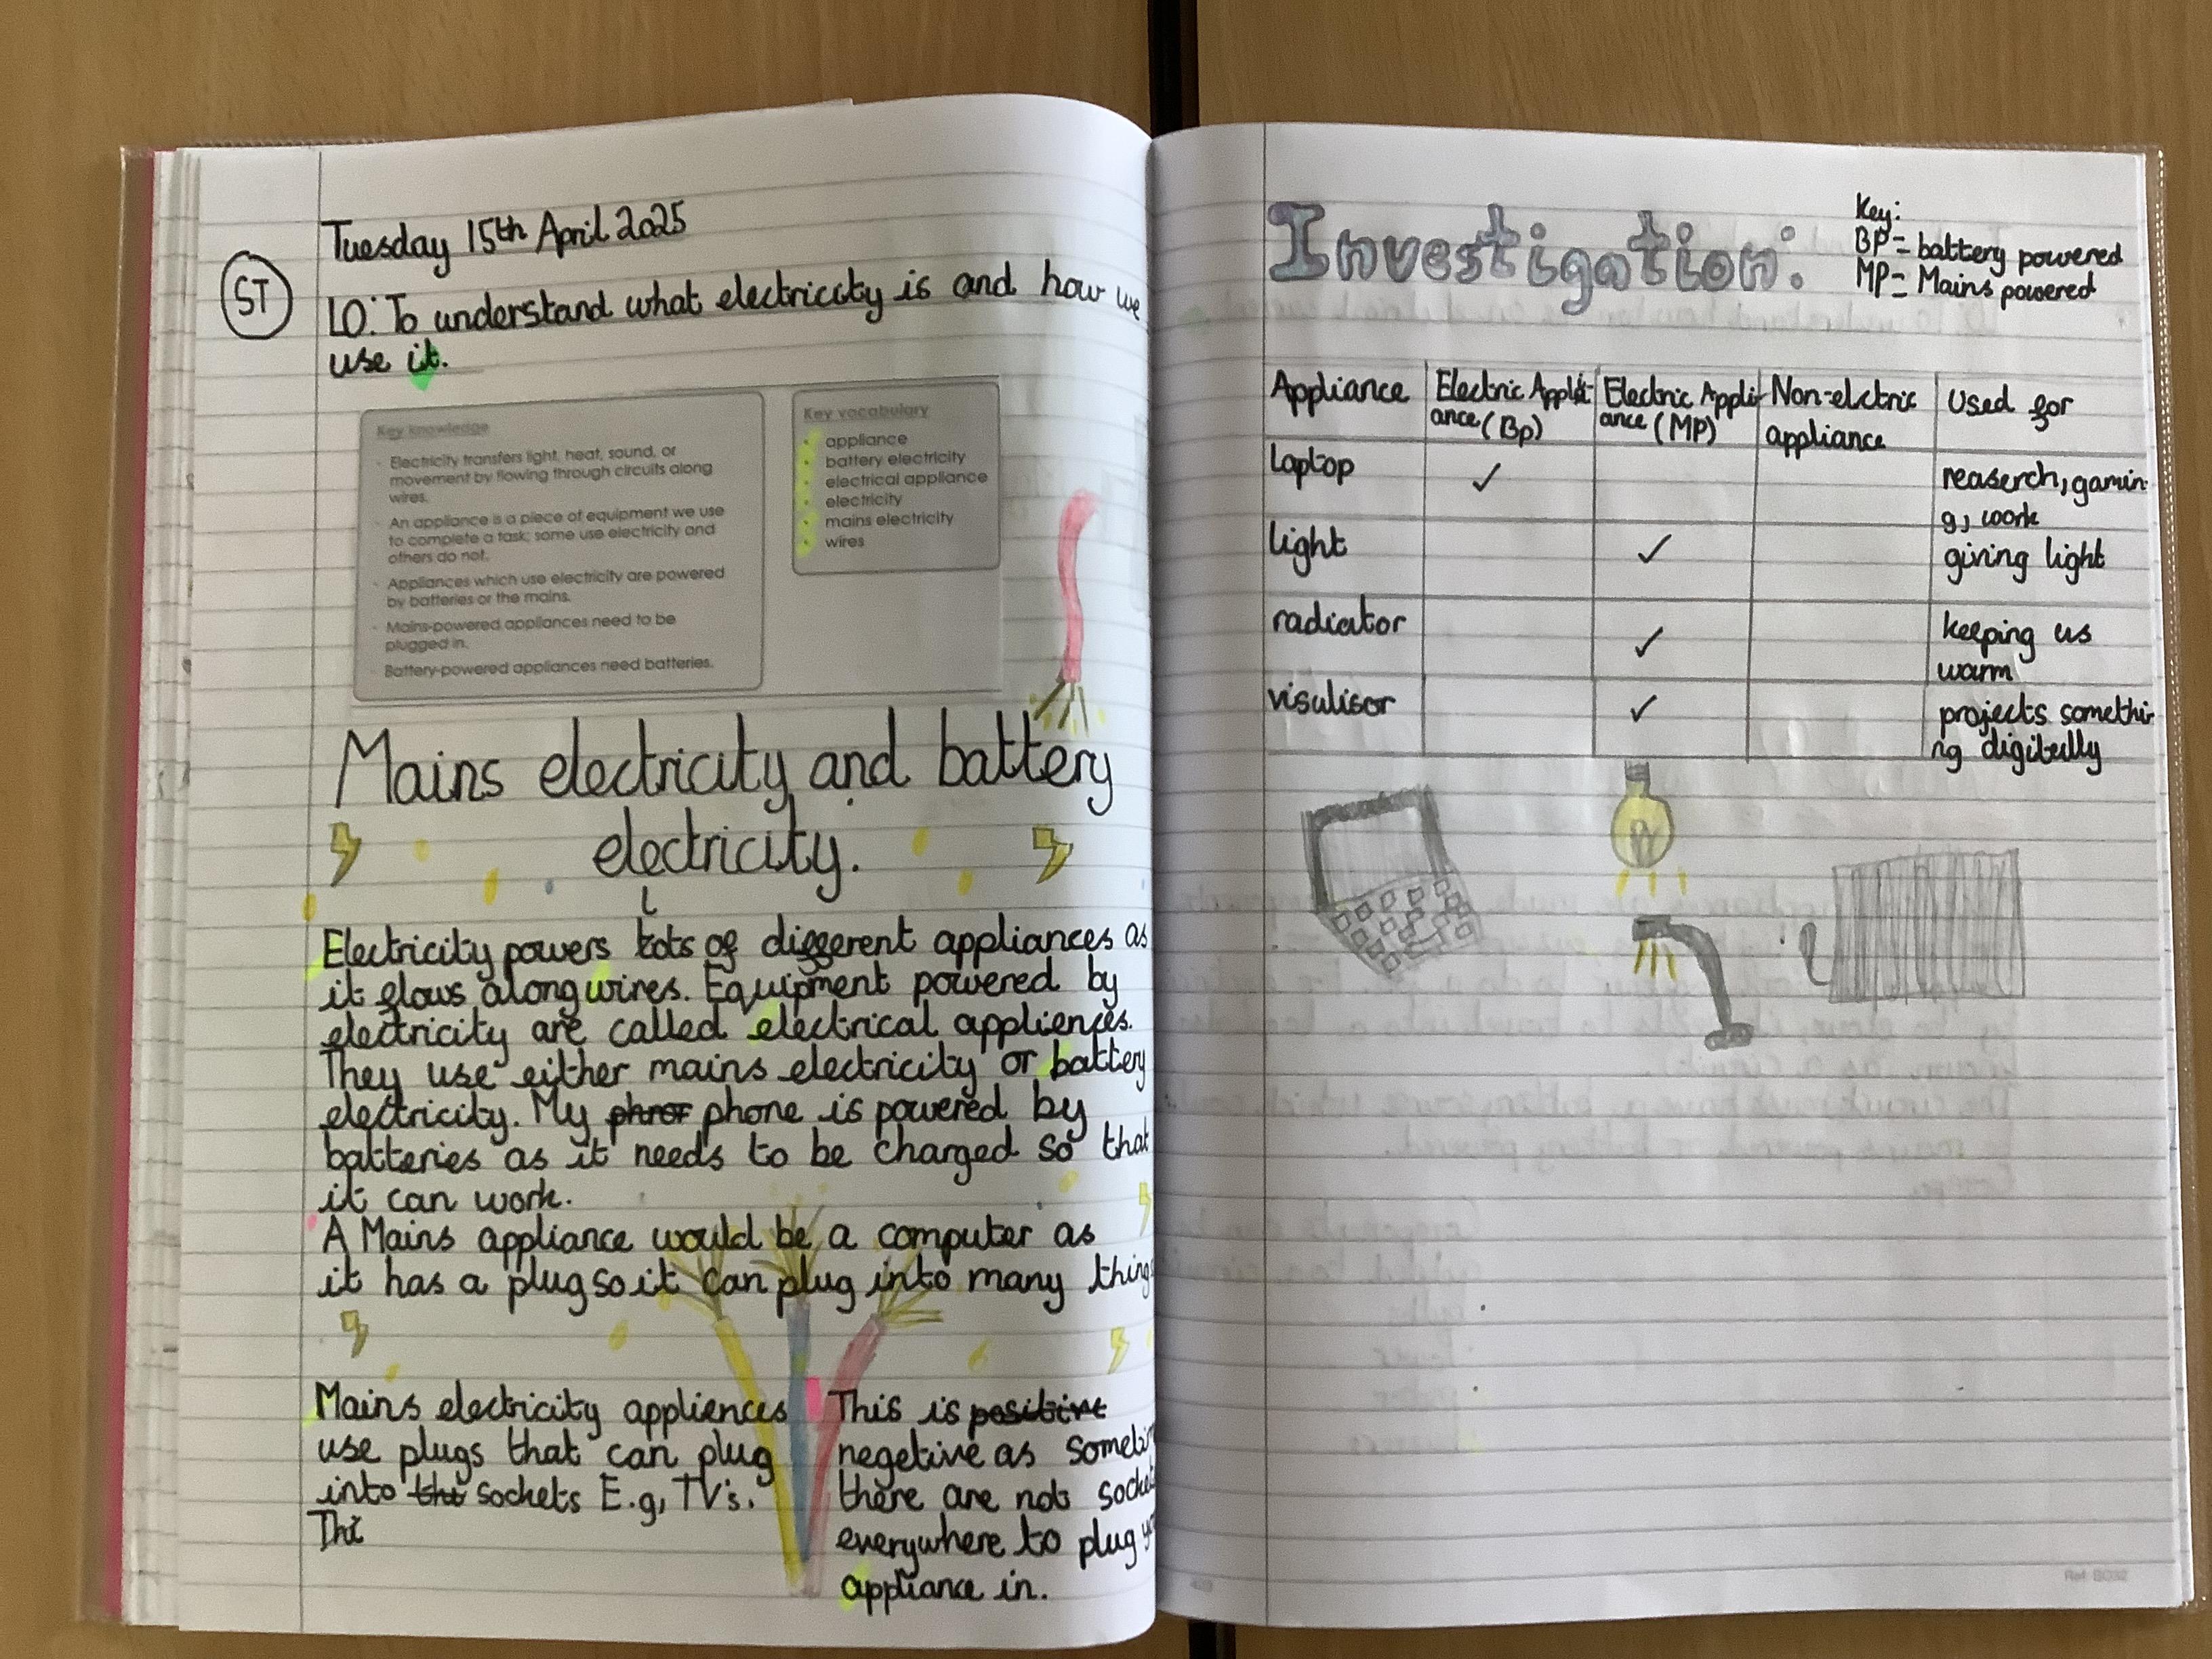 Tuesday 15th April 2025
ST
LO: To understand what electricity is and how we
use it.
Key knowledge
Electricity transfers light, heat, sound, or
movement by flowing through circuits along
wires.
An appliance is a piece of equipment we use
to complete a task; some use electricity and
others do not.
Appliances which use electricity are powered
by batteries or the mains.
Mains-powered appliances need to be
plugged in.
Battery-powered appliances need batteries.
Key vocabulary
appliance
battery electricity
electrical appliance
electricity
mains electricity
wires
Mains electricity and battery
electricity.
Electricity powers lots of different appliances as
it flows along wires. Equipment powered by
electricity are called electrical appliences.
They use either mains electricity or battery
electricity. My phone is powered by
batteries as it needs to be charged so that
it can work.
A Mains appliance would be a computer as
it has a plug so it can plug into many things
Mains electricity appliences
use plugs that can plug
into the sockets E.g, TV's.
Thi
This is positive
negetive as someti
there are not socket
everywhere to plug yo
appliance in.
Investigation:
Key:
BP = battery powered
MP = Mains powered
Appliance
Electric Appli-
ance (Bp)
Electric Appli
ance (MP)
Non-elctric
appliance
Used for
Laptop
✓
reaserch, gamin
g, work
light
✓
giving light
radiator
✓
keeping us
warm
visulisor
✓
projects somethi
ng digitally
Ref: BG32